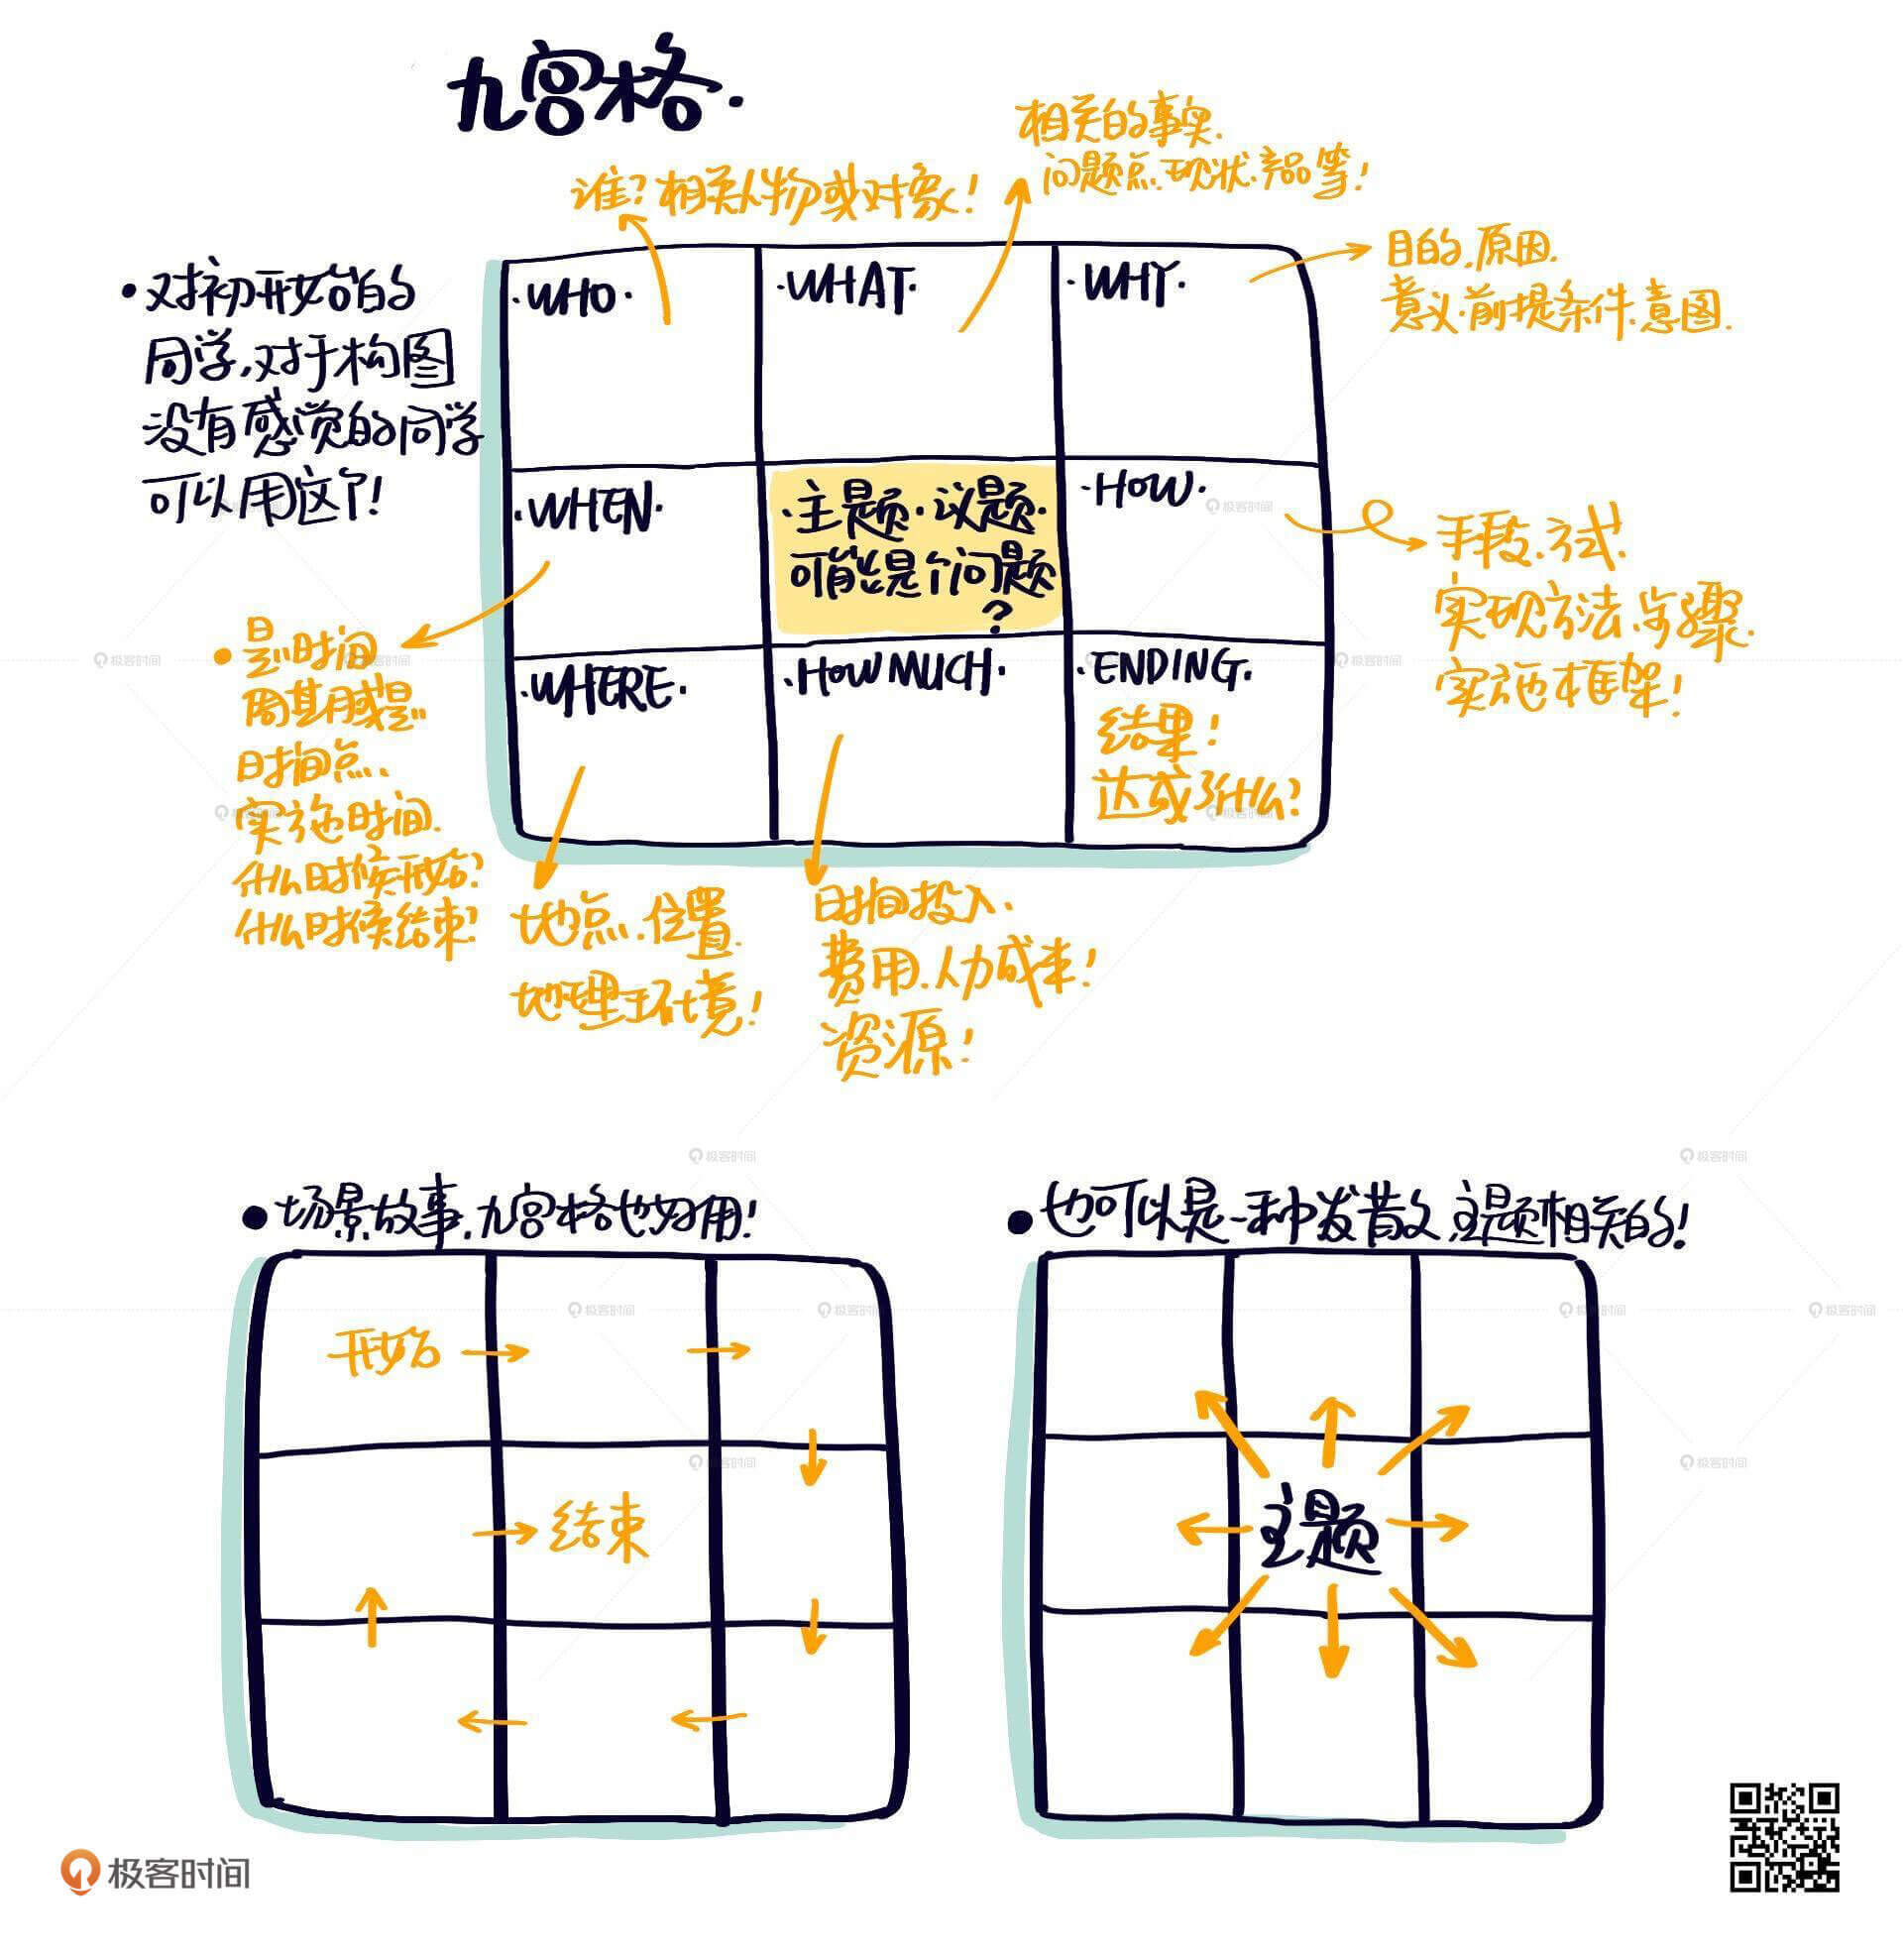 九宫格.
谁?相关人物或对象!
相关的事实.
问题点.现状.产品等!
目的.原因.
意义.前提条件.意图.
•对初开始的
同学,对于构图
没有感觉的同学
可以用这个!
·WHO·
·WHAT·
·WHY·
·WHEN·
·主题·议题·
可能是个问题
?
·HOW·
手段.方式.
实现方法.步骤.
实施框架!
•是时间
周期或是
时间点、
实施时间.
什么时候开始?
什么时候结束?
·WHERE·
·HOW MUCH·
·ENDING.
结果!
达成了什么?
地点.位置.
地理环境!
时间投入.
费用.人力成本!
资源!
•场景故事.九宫格也好用!
开始
结束
•也可以是一种发散.主题相关的!
主题
极客时间